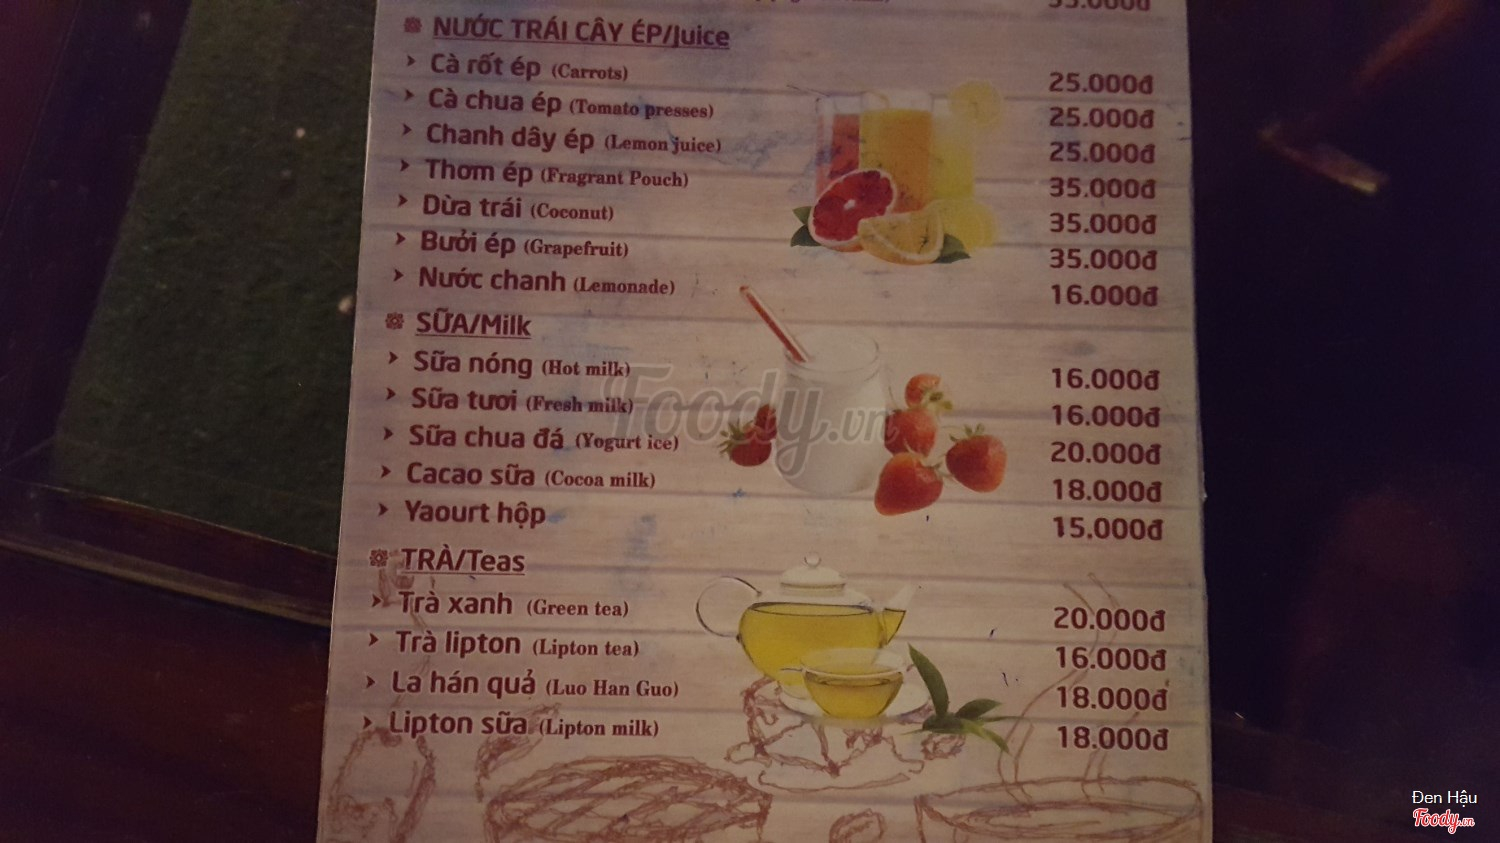 35.000đ
NƯỚC TRÁI CÂY ÉP/Juice
Cà rốt ép (Carrots) 25.000đ
Cà chua ép (Tomato presses) 25.000đ
Chanh dây ép (Lemon juice) 25.000đ
Thơm ép (Fragrant Pouch) 35.000đ
Dừa trái (Coconut) 35.000đ
Bưởi ép (Grapefruit) 35.000đ
Nước chanh (Lemonade) 16.000đ
SỮA/Milk
Sữa nóng (Hot milk) 16.000đ
Sữa tươi (Fresh milk) 16.000đ
Sữa chua đá (Yogurt ice) 20.000đ
Cacao sữa (Cocoa milk) 18.000đ
Yaourt hộp 15.000đ
TRÀ/Teas
Trà xanh (Green tea) 20.000đ
Trà lipton (Lipton tea) 16.000đ
La hán quả (Luo Han Guo) 18.000đ
Lipton sữa (Lipton milk) 18.000đ
Foody.vn
Đen Hậu
Foody.vn